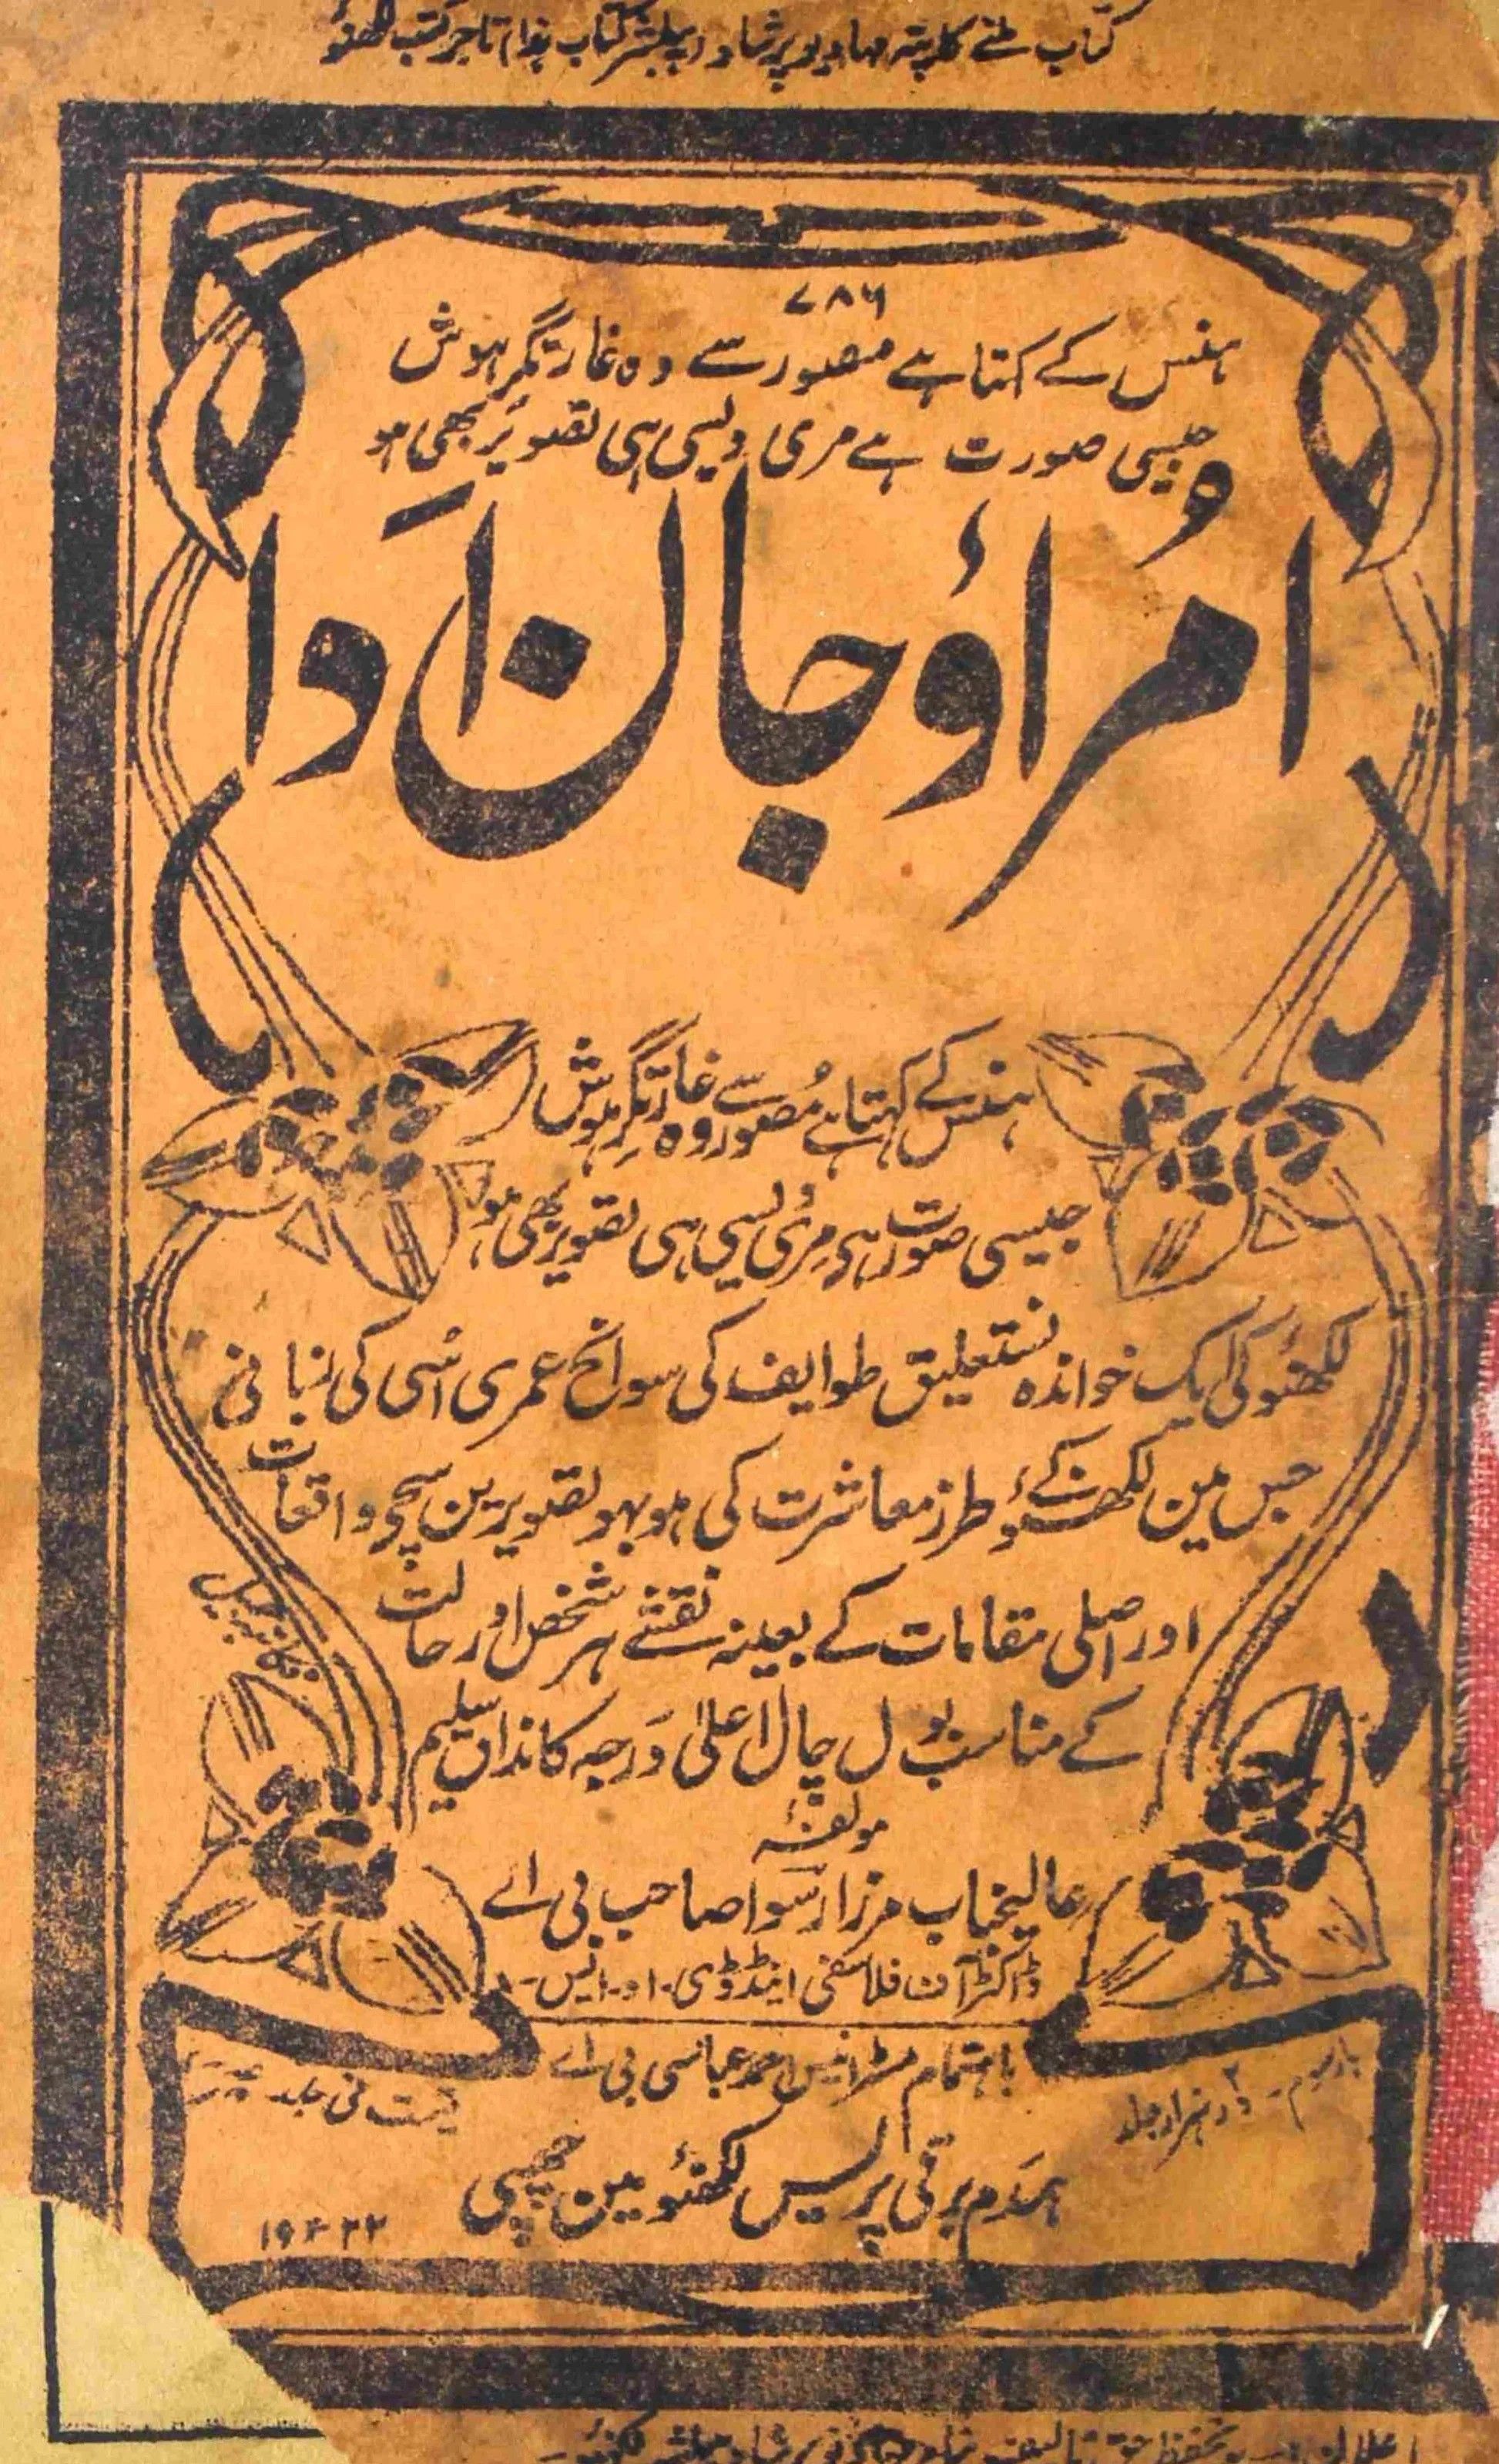 کتاب ملنے کا پتہ مہادیو پرشاد پبلشر کتاب ہذا تاجر کتب لکھنؤ
۷۸۶
ہنس کے کہتا ہے مصور سے وہ غارتگر ہوش
جیسی صورت ہے مری ویسی ہی تصویر بھی ہو
اُمراؤ جان اَدا
ہنس کے کہتا ہے مُصور سے وہ غارتگرِ ہوش
جیسی صورت ہے مِری ویسی ہی تصویر بھی ہو
لکھنؤ کی ایک خواندہ نستعلیق طوایف کی سوانح عمری اُسی کی زبانی
جس مین لکھنؤ کے طرز معاشرت کی ہو بہو تصویرین سچے واقعات
اور اصلی مقامات کے بعینہ نقشے ہر شخص اور حالت
کے مناسب بول چال اعلیٰ درجہ کا مذاق سلیم
مولفہٗ
عالیجناب مرزا رسوا صاحب بی اے
ڈاکٹر آف فلاسفی اینڈ ڈی۔او۔ایس۔
باہتمام مسٹر انیس احمد عباسی بی اے
بار سوم۔ دو ہزار جلد
قیمت فی جلد
ہمدم برقی پریس لکھنؤ مین چھپی